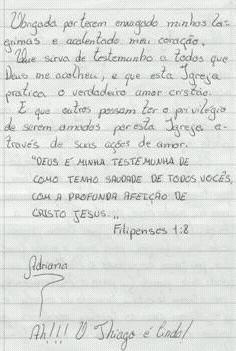 Obrigada por terem enxugado minhas lá-
grimas e acalentado meu coração.
Que sirva de testemunho a todos que
Deus me acolheu, e que esta Igreja
pratica o verdadeiro amor cristão.
E que outros possam ter o privilégio
de serem amados por esta Igreja a-
través de suas ações de amor.
"DEUS É MINHA TESTEMUNHA DE
COMO TENHO SAUDADE DE TODOS VOCÊS,
COM A PROFUNDA AFEIÇÃO DE
CRISTO JESUS...
Filipenses 1:8
Adriana
Ah!!! O Thiago é lindo!